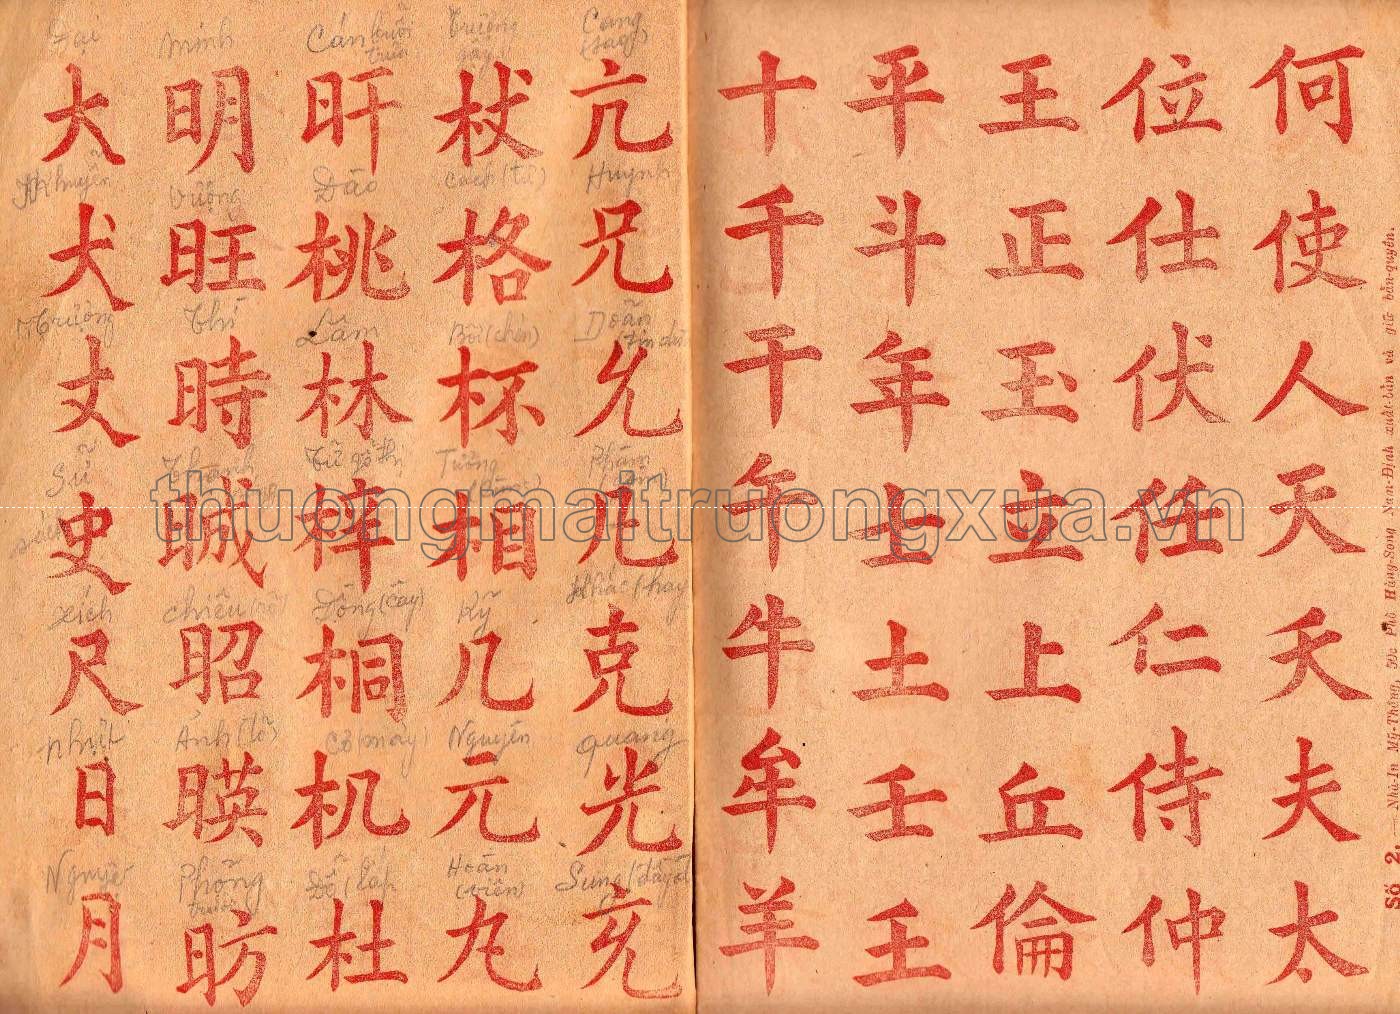 何使人天夭夫太
位仕伏任仁侍仲
王正玉立上丘倫
平斗年士土壬壬
十千干午牛牟羊
亢兄允凡克光充
杖格杯相几元丸
旰桃林梓桐机杜
明旺時晠昭暎昉
大犬丈史尺日月
Huỳnh
Doãn
quang
Trượng gậy
Cách (từ)
Tướng
Kỷ
Nguyên
Hoàn (viên)
Cán buổi trưa
Đào
Lâm
Đồng (cây)
Cơ (máy)
Đỗ
minh
Vượng
Thì
Thành
chiêu
Ảnh (tỏ)
Phỏng
Đại
Khuyển
Trượng
Sử
xích
nhựt
Nguyệt
Số 2. Nhà-In Mỹ-Thắng, Phố Hàng-Song Nam-Định xuất-bản và giữ bản-quyền.
thuongmaitruongxua.vn